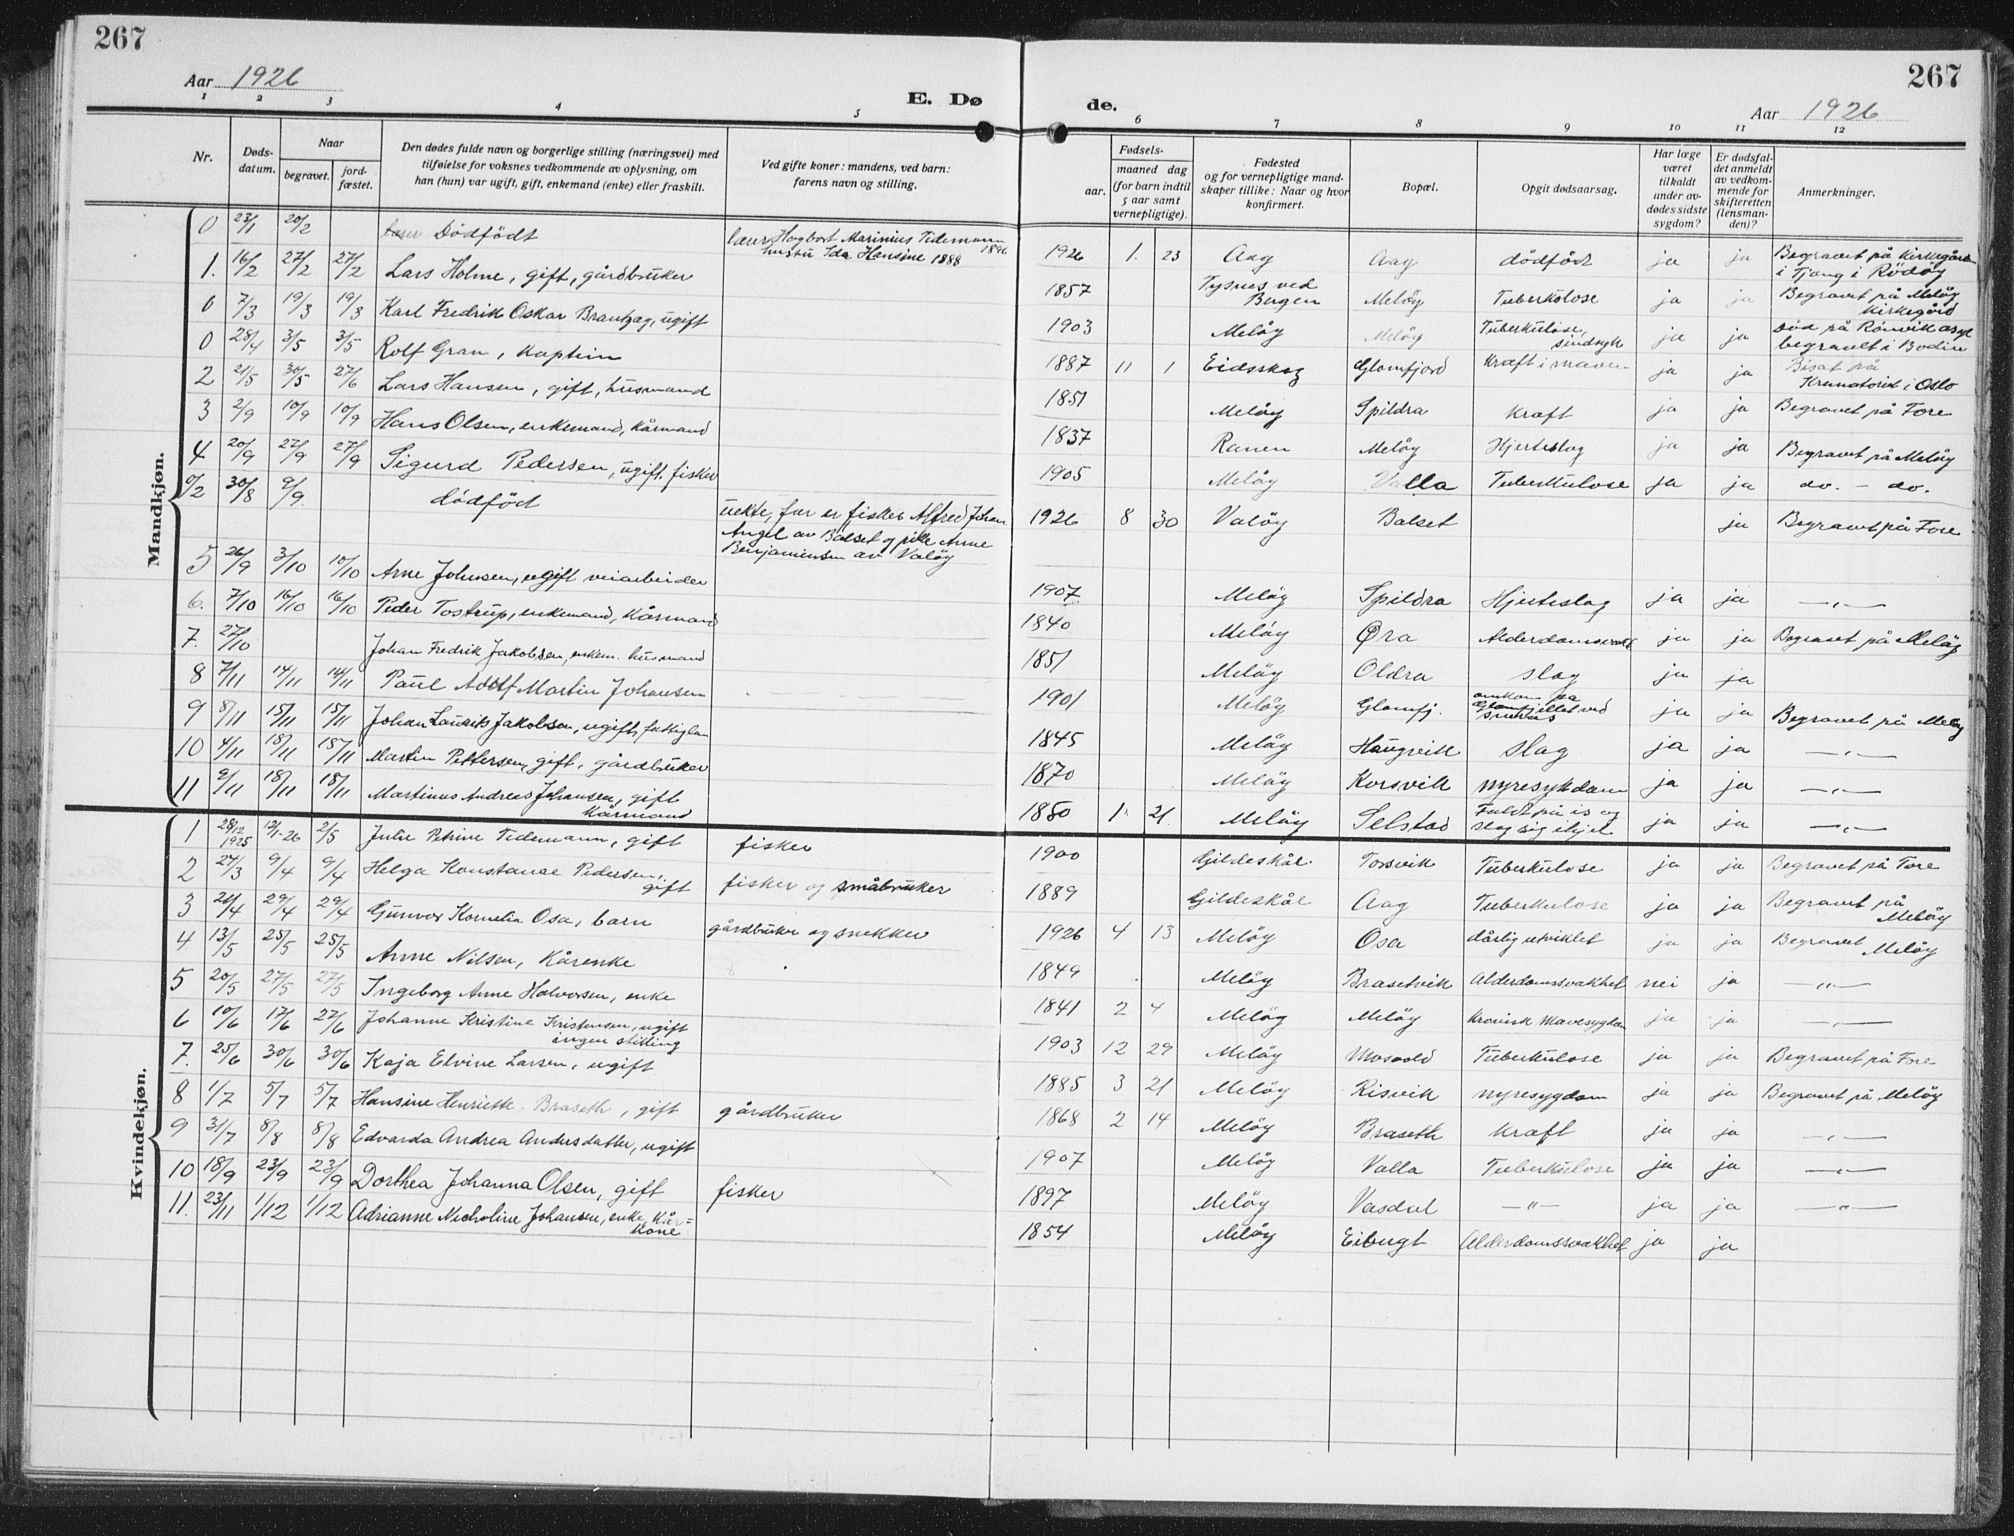 267
267
Aar 1926
E. Dø
de.
Aar 1926
1 2 3 4 5 6 7 8 9 10 11 12
Nr.
Døds-
datum.
Naar
begravet.
jord-
fæstet.
Den dødes fulde navn og borgerlige stilling (næringsvei) med
tilføielse for voksnes vedkommende av oplysning, om
han (hun) var ugift, gift, enkemand (enke) eller fraskilt.
Ved gifte koner: mandens, ved barn:
farens navn og stilling.
Fødsels-
aar.
maaned dag
(for barn indtil
5 aar samt
vernepligtige).
Fødested
og for vernepligtige mand-
skaper tillike: Naar og hvor
konfirmert.
Bopæl.
Opgit dødsaarsag.
Har læge
været
tilkaldt
under av-
dødes sidste
sygdom?
Er dødsfal-
det anmeldt
av vedkom-
mende for
skifteretten
(lensman-
den)?
Anmerkninger.
Mandkjøn.
0 23/1 20/2 Dödfödt
Marinius Tidemann 1896
hustu Ida Hansine 1888
1926 1. 23 Aag Aag dödfödt ja ja Begravet på kirkegården
i Tjong i Rödöy
1. 16/2 27/2 27/2 Lars Holme, gift, gårdbruker 1857 Tysnes ved
Bergen Melöy Tuberkulose ja ja Begravet på Melöy
Kirkegård
0 7/3 19/3 19/3 Karl Fredrik Oskar Brantzag, ugift 1903 Melöy Melöy Tuberkulose,
sindsyk ja ja död på Rönvik asyl
begravet i Bodin
0 28/4 3/5 3/5 Rolf Gran, Kaptein 1887 11 1 Eidsskog Glomfjord Kræft i maven ja ja Bisat på
Krematoriet i Oslo
2 21/5 30/5 27/6 Lars Hansen, gift, husmand 1851 Melöy Spildra Kræft ja ja Begravet på Fore
3 2/9 10/9 10/9 Hans Olsen, enkemand, Kårmand 1837 Ranen Melöy Hjerteslag ja ja Begravet på Melöy
4 20/9 27/9 27/9 Sigurd Pedersen, ugift, fisker 1905 Melöy Valla Tuberkulose ja ja do. - do.
0/2 30/8 9/9. dödfödt uekte, far er fisker Alfred Johan
Angel av Balset og pike Anne
Benjaminsen av Valöy
1926 8 30 Valöy Balset ja Begravet på Fore
5 26/9 3/10 10/10 Arne Johnsen, ugift veiarbeider 1907 Melöy Spildra Hjerteslag ja ja —„—
6. 7/10 16/10 16/10 Peder Tostrup, enkemand, Kårmand 1840 Melöy Øra ja ja Begravet på Melöy
7. 27/10 Johan Fredrik Jakobsen, enkem. husmand 1851 Melöy Oldra slag ja ja
8 7/11 14/11 14/11 Paul Adolf Martin Johansen 1901 Melöy Glomfj. omkom på
Glomfjellet ved
ja ja Begravet på Melöy
9 8/11 15/11 15/11 Johan Laurits Jakobsen, ugift, 1845 Melöy Haugvik slag ja ja —„—
10 4/11 18/11 18/11 Martin Pettersen, gift, gårdbruker 1870 Melöy Korsvik nyresykdom ja ja —„—
11 9/11 18/11 18/11 Martinus Andreas Johansen, gift
Kårmand 1850 1. 21 Melöy Selstad Faldt på is og
slog sig ihjel ja ja —„—
Kvindekjøn.
1 28/12 1925 12/1-26 2/5 Julie Petrine Tidemann, gift fisker 1900 Gildeskål. Torsvik Tuberkulose ja ja Begravet på Fore
2 27/3 9/4 9/4 Helga Konstanse Pedersen,
gift fisker og småbruker 1889 Gildeskål Aag Tuberkulose ja ja Begravet på
Melöy
3 24/4 29/4 29/4 Gunvor Kornelia Osa, barn gårdbruker og snekker 1926 4 13 Melöy Osa dårlig utviklet ja ja Begravet
Melöy
4 13/5 25/5 25/5 Anne Nilsen, Kårenke 1849 Melöy Brasetvik Alderdomssvakhet nei ja —„—
5 20/5 27/5 27/5 Ingeborg Anne Halvorsen, enke 1841 2 4 Melöy Melöy Kronisk Mavesygdom ja ja —„—
6 10/6 17/6 27/6 Johanne Kristine Kristensen, ugift
ingen stilling 1903 12 29 Melöy Mosvold Tuberkulose ja ja Begravet på Fore
7. 25/6 30/6 30/6 Kaja Elvine Larsen, ugift 1885 3 21 Melöy Risvik nyresygdom ja ja Begravet på Melöy
8 1/7 5/7 5/7 Hansine Henriette Braseth, gift gårdbruker 1868 2 14 Melöy Braseth Kræft ja ja —„—
9 31/7 8/8 8/8 Edvarda Andrea Andersdatter, ugift 1907 Melöy Valla Tuberkulose ja ja —„—
10 18/9 23/9 23/9 Dorthea Johanna Olsen, gift fisker 1897 Melöy Vasdal —"— ja ja —„—
11. 23/11 1/12 1/12 Adrianne Nicholine Johansen, enke Kår=
Kone 1854 Melöy Eibugt Alderdomssvakhet ja ja